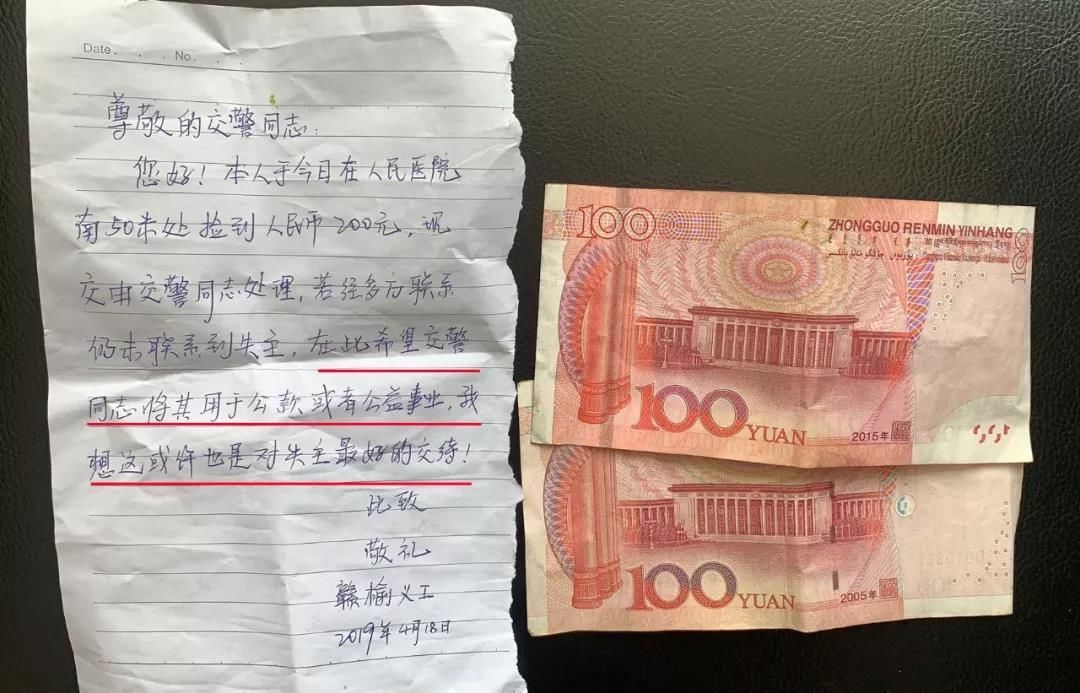 Date . . . No. . . .
尊敬的交警同志：
您好！本人于今日在人民医院
南50米处捡到人民币200元，现
交由交警同志处理，若经多方联系
仍未联系到失主，在此希望交警
同志将其用于公款或者公益事业，我
想这或许也是对失主最好的交待！
此致
敬礼
赣榆义工
2019年4月18日
100
ZHONGGUO RENMIN YINHANG
100
100 YUAN
2015年
100 YUAN
2005年